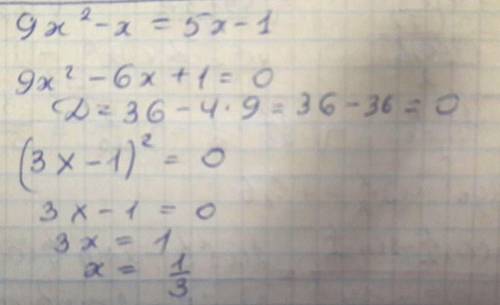 9x² - x = 5x - 1
9x² - 6x + 1 = 0
D = 36 - 4 · 9 = 36 - 36 = 0
(3x - 1)² = 0
3x - 1 = 0
3x = 1
x = 1/3